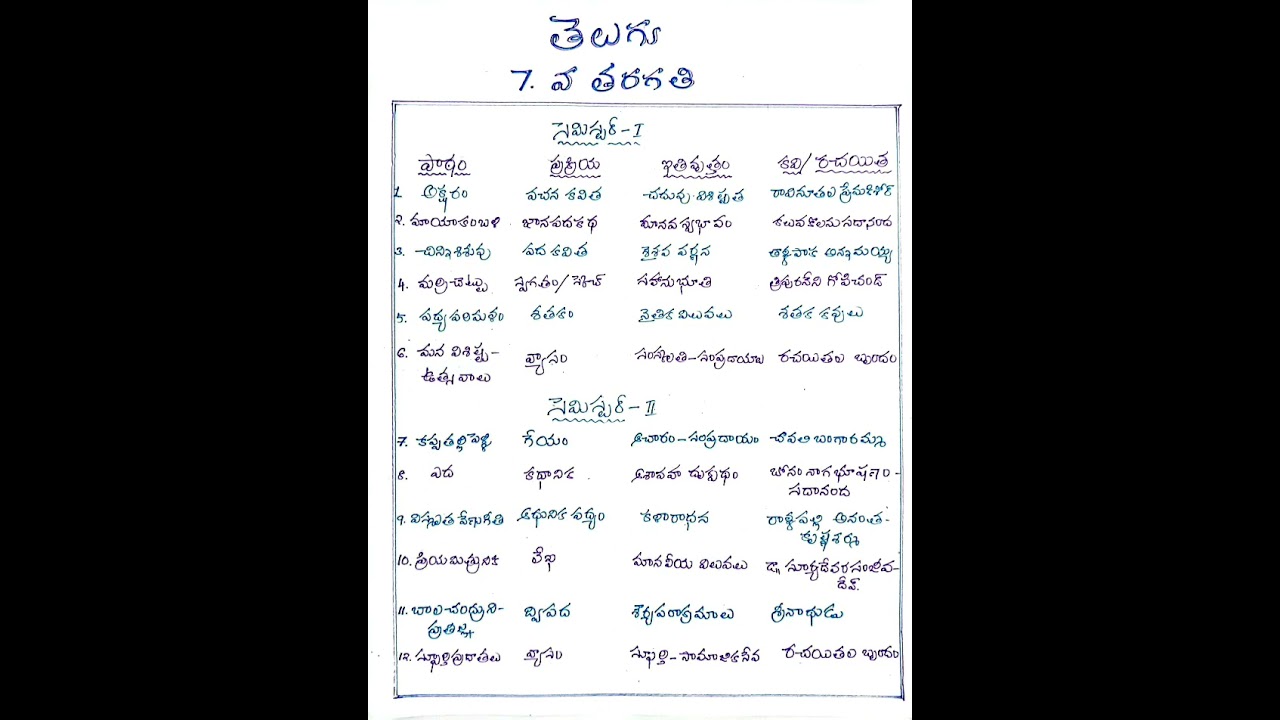 తెలుగు
7. వ తరగతి
సెమిస్టర్ - I
పాఠం ప్రక్రియ ఇతివృత్తం కవి/రచయిత
1. అక్షరం వచన కవిత చదువు విశిష్టత రావినూతల ప్రేమకిశోర్
2. మాయాకంబళి జానపద కథ మానవ స్వభావం కలువకొలను సదానంద
3. చిన్నిశిశువు పద కవిత శైశవ వర్ణన తాళ్ళపాక అన్నమయ్య
4. మర్రిచెట్టు స్వగతం/స్కెచ్ సహానుభూతి త్రిపురనేని గోపీచంద్
5. పద్యపరిమళం శతకం నైతిక విలువలు శతక కవులు
6. మన విశిష్ట- వ్యాసం సంస్కృతి-సంప్రదాయాలు రచయితల బృందం
ఉత్సవాలు
సెమిస్టర్ - II
7. కప్పతల్లి పెళ్లి గేయం ఆచారం-సంప్రదాయం చావలి బంగారమ్మ
8. ఎద కథానిక ఆశావహ దృక్పథం బోనం నాగభూషణం-
సదానంద
9. విస్మృత వేణుగీతి ఆధునిక పద్యం కళారాధన రాళ్ళపల్లి అనంత-
కృష్ణశర్మ
10. ప్రియమిత్రునికి లేఖ మానవీయ విలువలు డా॥ సూర్యదేవర సంజీవ-
దేవ్.
11. బాలచంద్రుని- ద్విపద శౌర్యపరాక్రమాలు శ్రీనాథుడు
ప్రతిజ్ఞ
12. స్ఫూర్తిప్రదాతలు వ్యాసం స్ఫూర్తి-సామాజికసేవ రచయితల బృందం